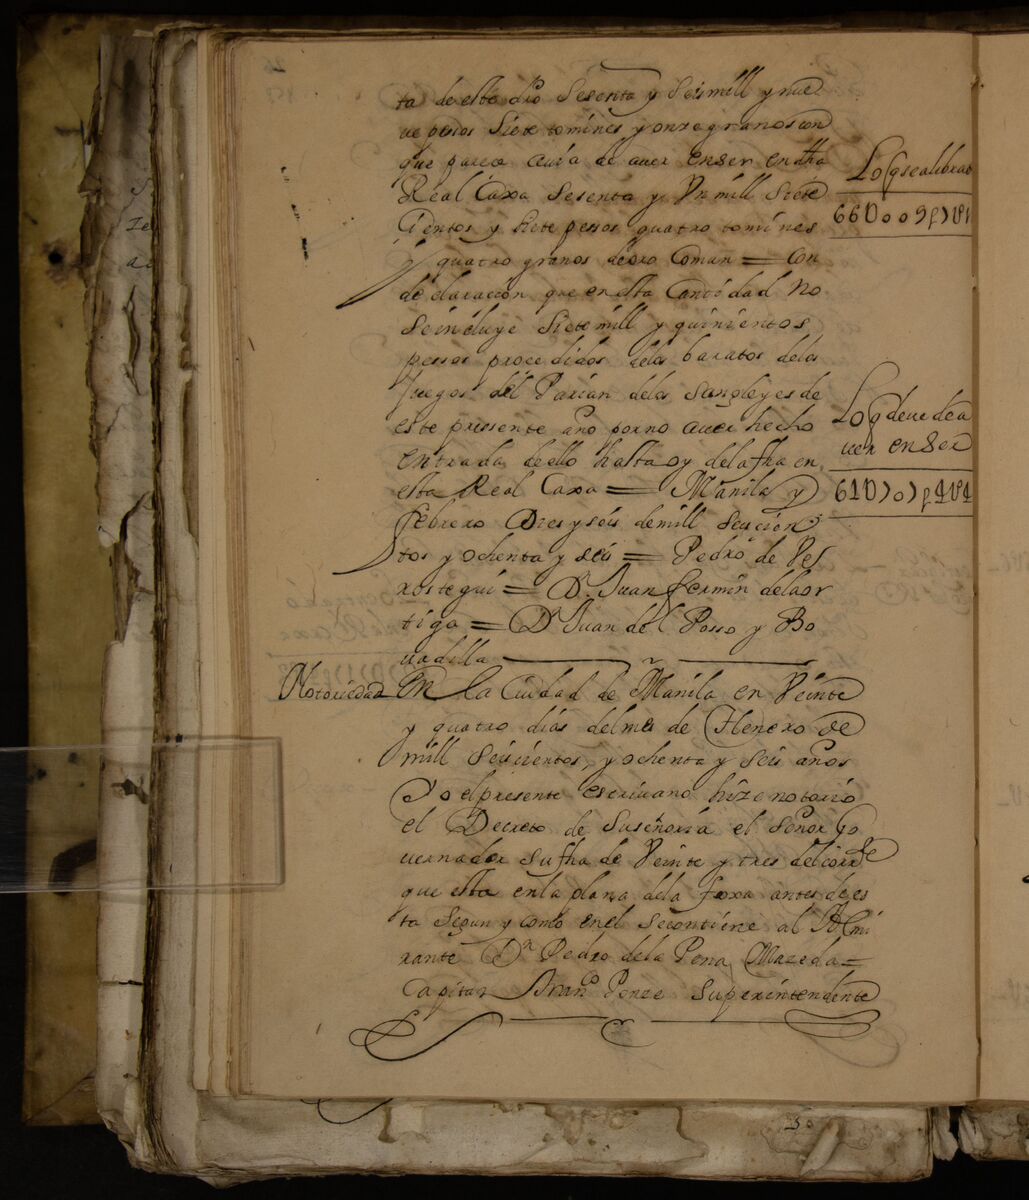 ta de este dho Sesenta y Seis mill y nue
ve pesos Siete tomines y onze granos con
que parece avia de aver en ser en dha
Lo q se a librado
Real Caxa Sesenta y Un mill Siete
Cientos y siete pessos quatro tomines
y quatro granos de oro Comun = Con
declaracion que en esta Cantidad No
Se incluye Siete mill y quinientos
pessos procedidos de los baratos de los
Juegos del Parian de los Sangleyes de
este pressente año por no aver hecho
Lo q deve de a
ver en Ser
entrada de ello hasta oy dela fha en
esta Real Caxa = Manila y
febrero Dies y séis de mill Seiscien
tos y ochenta y séis = Pedro de Ver
rostegui = D. Juan fermin de la or
tiga = D Juan del Posso y Bo
vadilla
Notoriedad
En la Ciudad de Manila en Veinte
y quatro dias del mes de Henero de
mill Seiscientos, y ochenta y seis años
Yo el presente escrivano hize notorio
el Decreto de Su señoria el Señor Go
vernador su fha de Veinte y tres del corrte
que esta en la plana dela foxa antes de es
ta Segun y como en el Se contiene al Almi
rante Dn Pedro de la Pena Mazeda =
Capitan Franco Ponze Superintendente